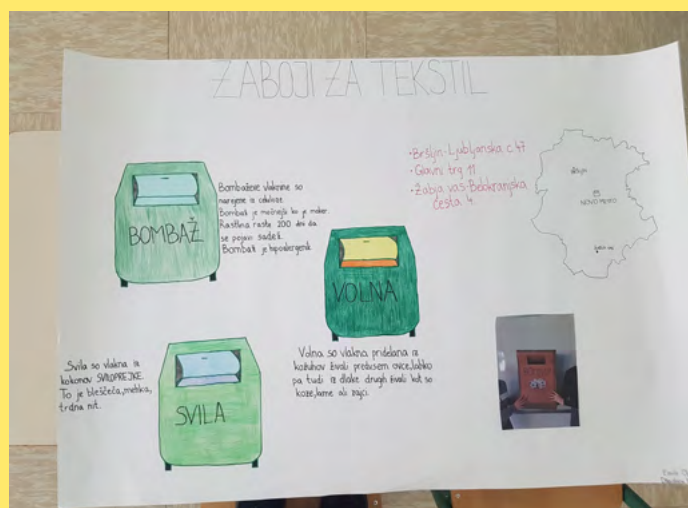 ZABOJI ZA TEKSTIL
BOMBAŽ
Bombaževe vlaknine so
narejene iz celuloze.
Bombaž je močnejši ko je moker.
Rastlina raste 200 dni da
se pojavi sadež.
Bombaž je hipoalergenik.
• Bršljin-Ljubljanska c. 47
• Glavni trg 11
• Žabja vas-Belokranjska
cesta 4.
NOVO MESTO
VOLNA
Volna so vlakna pridelana iz
kožuhov živali predvsem ovce, lahko
pa tudi iz dlake drugih živali kot so
koze, lame ali zajci.
SVILA
Svila so vlakna iz
kokonov SVILOPREJKE.
To je bleščeča, mehka,
trdna nit.